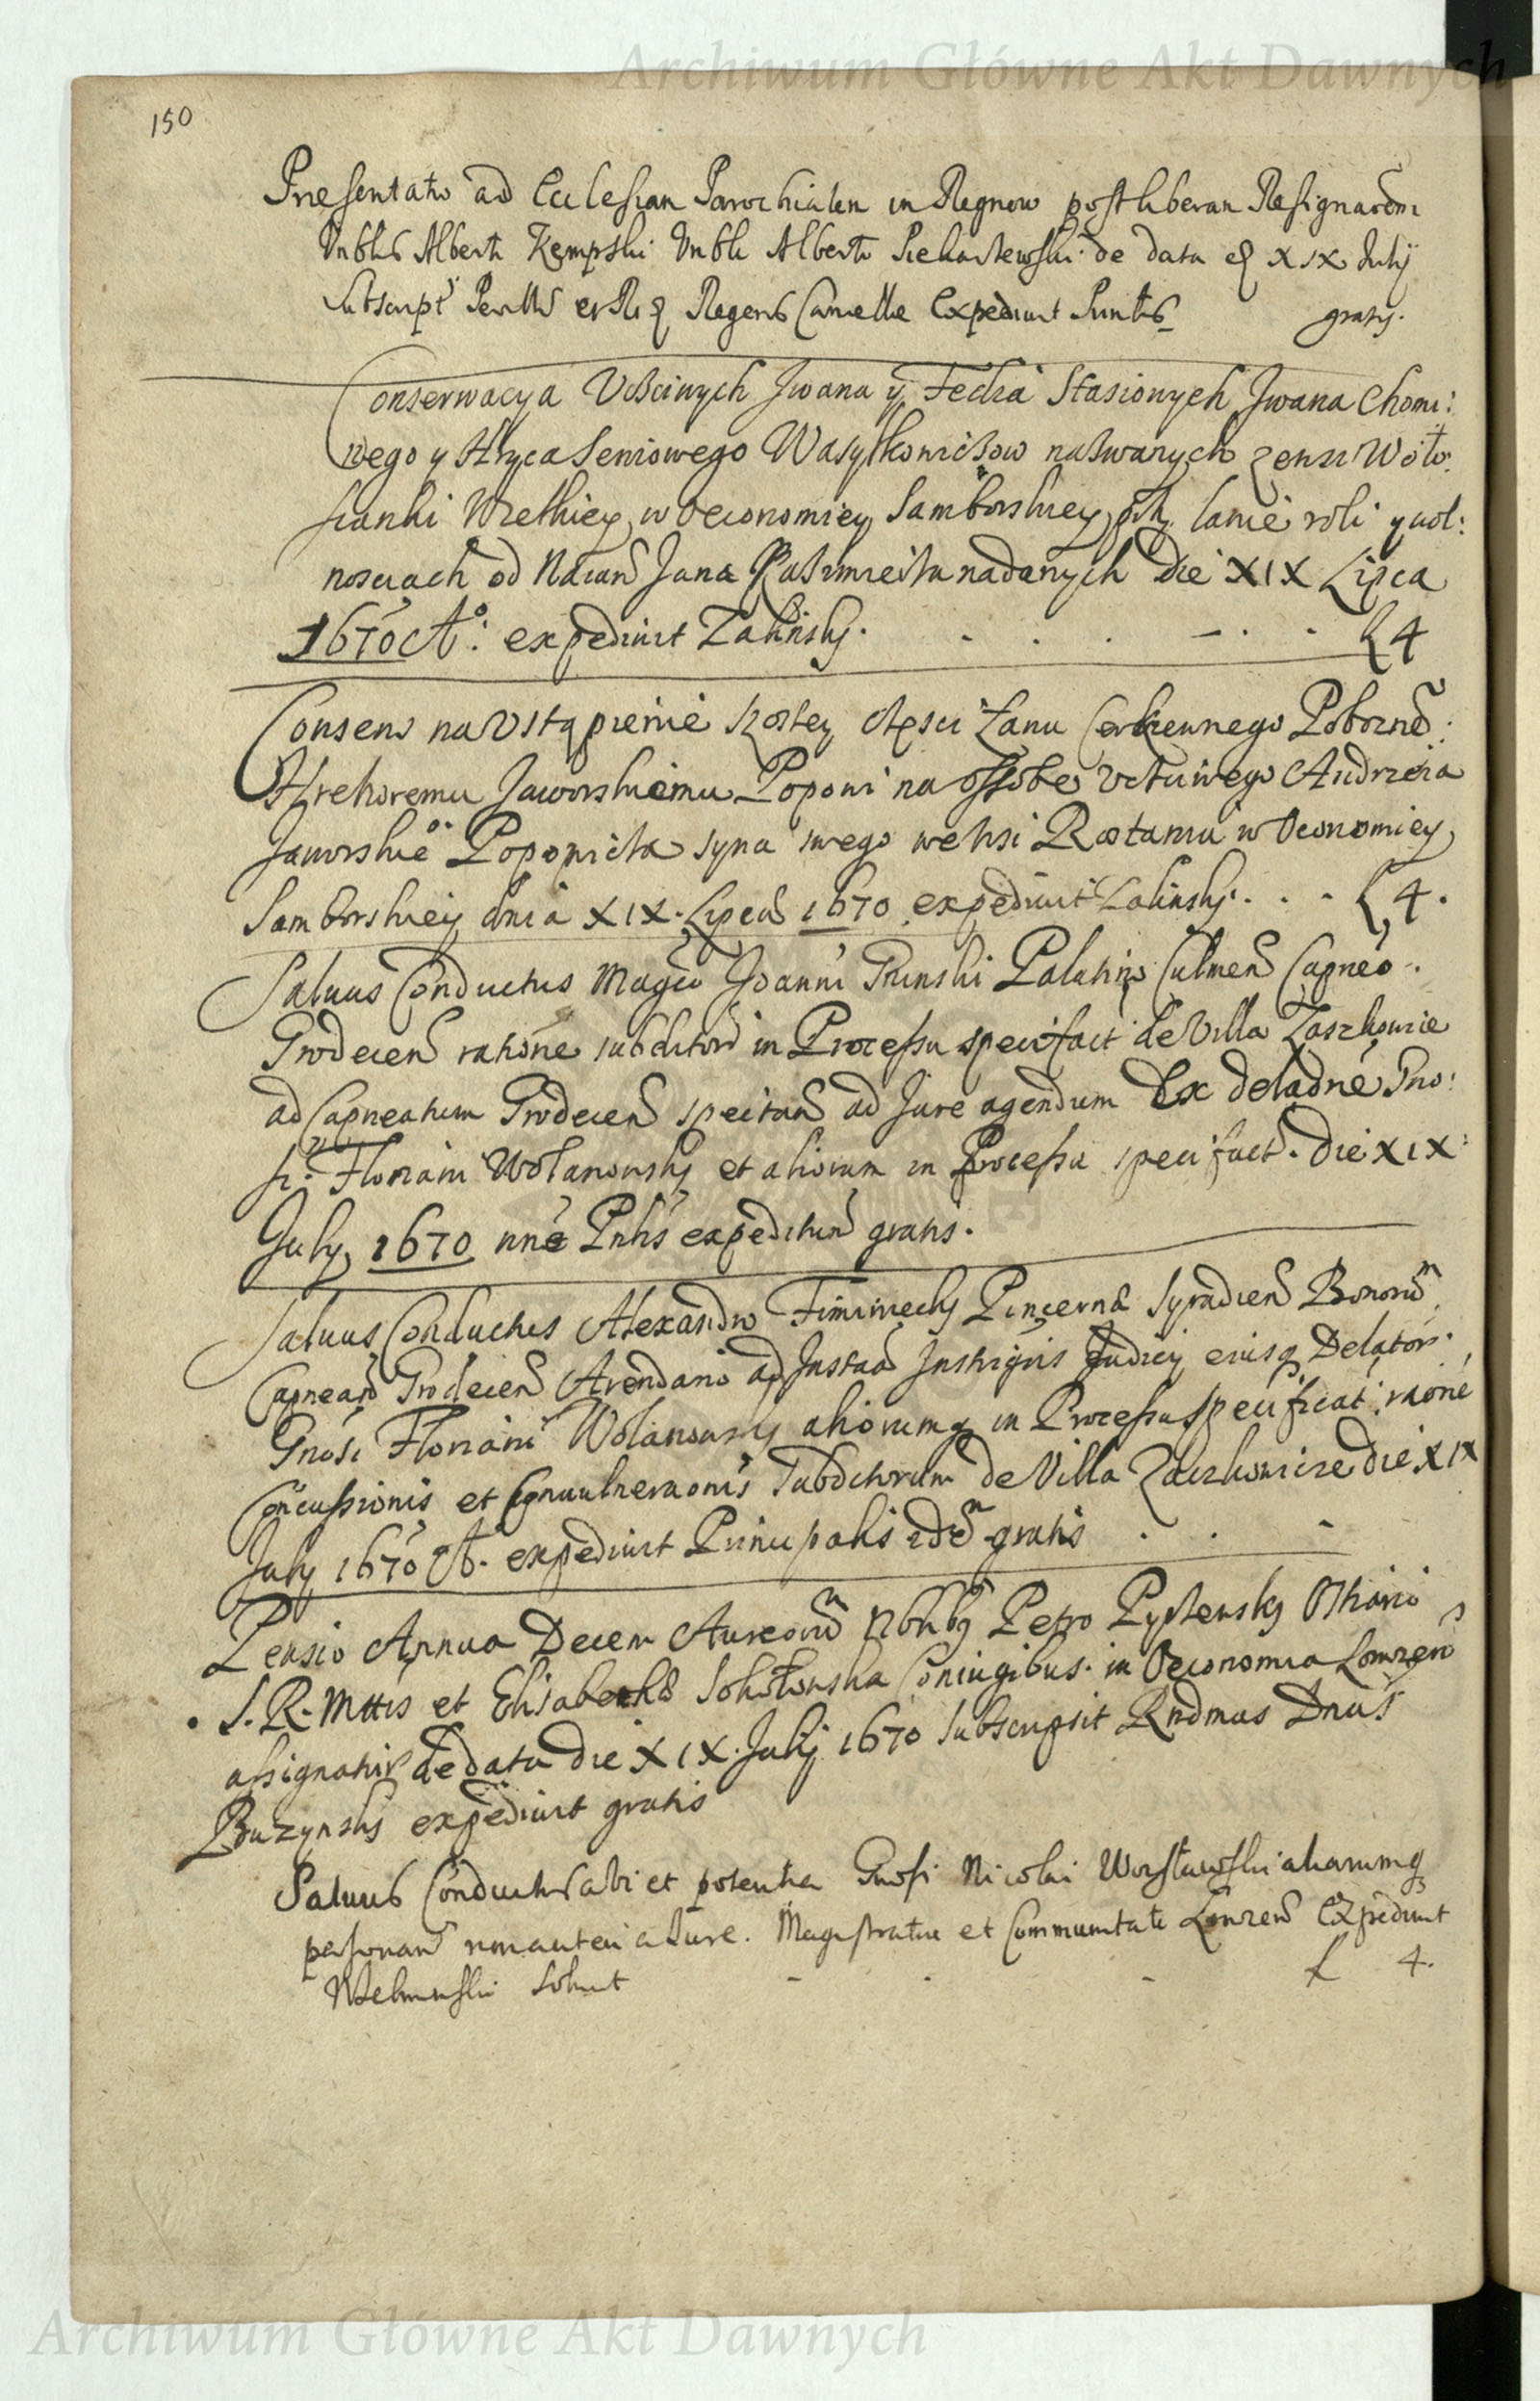 Archiwum Główne Akt Dawnych
150
Presentatio ad Ecclesiam Parochialem in Regnow post liberam Resignaõem
Vnblis Alberti Kempski Vnbli Alberto Piekartewski de data eȝ XIX Julij
Subscript gratis.
Conserwacya Vćciwych Jwana y Fedka Stasionych Jwana Chomi:
wego y Hryca Seniowego Wasylkowiczow nazwanych zewsi Woło:
sianki Wielkiey w Oeconomiey Samborskiey przy łanie roli y wol:
nosciach od Jana Kazimierza nadanych die XIX Lipca
1670 Aº: expediuit Załinskj. ₤ 4
Consens na Vstąpienie szostey części Łanu Cerkiewnego Pobozné:
Hrehoremu Jaworskiemu Poponi na ossobe vctiwego Andrzeia
Jaworskie Popowicza syna swego we wsi Roztamu w Oeconomiey
Samborskiey dnia XIX. Lipca 1670 expediuit Zalinskj. . . ₤ 4.
Saluus Conductus Magco Joanni Gninski Palatino Culmen Capneo.
Grodecen ratione subditorũ in Processu specifact de Villa Zaszkowie
ad Capneatum Grodecen spectan ad Jure agendum Ex deladne Gno:
si. Floriani Wolanowskj et aliorum in Processu specifact. die XIX:
Julij 1670 expeditum gratis.
Saluus Conductus Alexandro Pincerna Syradien Bonorũ
Capnean Grodecen Arendario ad Instan Instrigtis Judicij eiusq Delator.
Gnosi Floriani Wolanowskj aliorumq in Processu specificat. raone
Concussionis et Conuulneraonis Subditorum de Villa Zaszkowicze die XIX
Julij 1670 Aº. expediuit Principalis idem gratis . . -
Pensio Annua Decem Aureorũ Nblibȝ Petro Ostiario
S. R. Mttis et Elisabetha Sokołowska Coniugibus. in Oeconomia Lowzen
assignatur de data die XIX. Julij 1670 subscripsit Rndmus Dnus
Buzynskj expediuit gratis
Saluus Conductus a vi et potentia Gnosi Nicolai aliarumq
personarũ a Jure. Magistratui et Communitati Expediuit
soluit - - - ₤ 4.
Archiwum Główne Akt Dawnych